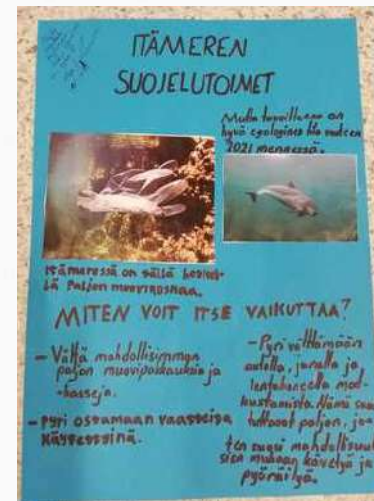 ITÄMEREN
SUOJELUTOIMET
on
hyvä ekologinen tila vuoteen
2021 mennessä.
Itämeressä on
paljon muoviroskaa.
MITEN VOIT ITSE VAIKUTTAA?
- Vältä mahdollisimman
paljon muovipakkauksia ja
-kasseja.
- Pyri ostamaan vaatteita
käytettyinä.
- Pyri välttämään
autolla, junalla ja
lentokoneella mat-
kustamista. Nämä
paljon, jo
ten suosi mahdollisuuk
sien mukaan kävelyä ja
pyöräilyä.